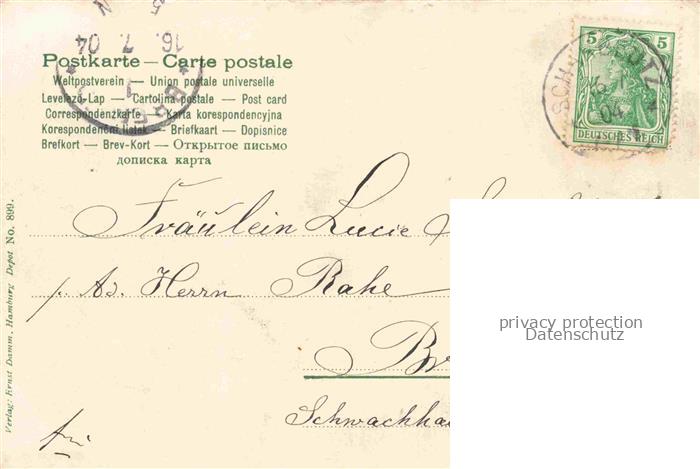 Postkarte — Carte postale
Weltpostverein — Union postale universelle
Levelező-Lap — Cartolina postale — Post card
Correspondenzkarte — Karta korespondencyjna
Korespondenční lístek — Briefkaart — Dopisnice
Brefkort — Brev-Kort — Открытое письмо
дописка карта
16. 7. 04
5 5
DEUTSCHES REICH
04
Fräulein Lucie
p. Ad. Herrn Rahe
Br
Schwachha
privacy protection
Datenschutz
Verlag: Ernst Damm, Hamburg Depot No. 899.